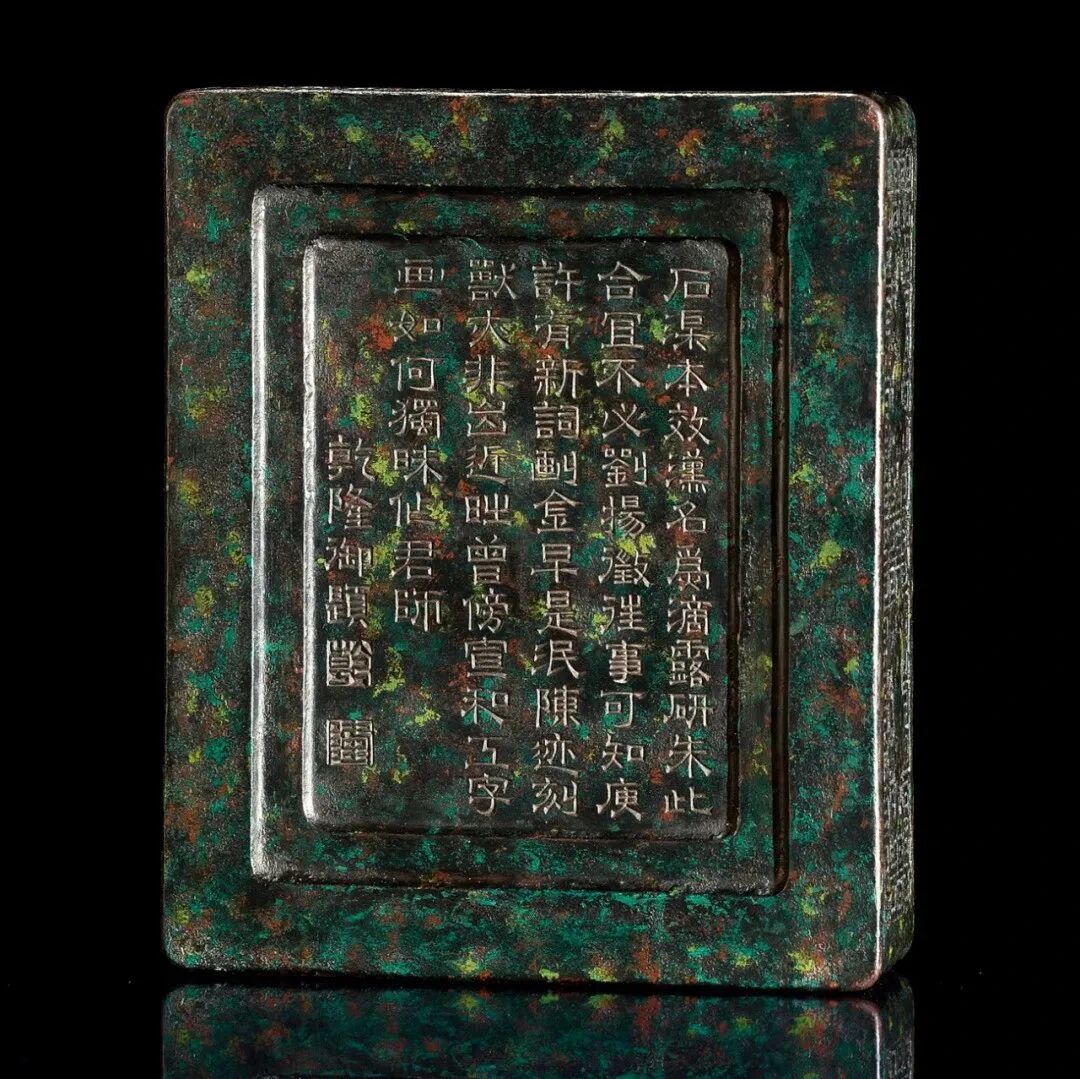 石渠本效漢名爲滴露研朱此
合宜不必劉揚徵往事可知庾
許有新詞劃金早是泯陳迹刻
獸非近時曾傍宣和工字
画如何獨昧作君師
乾隆御題